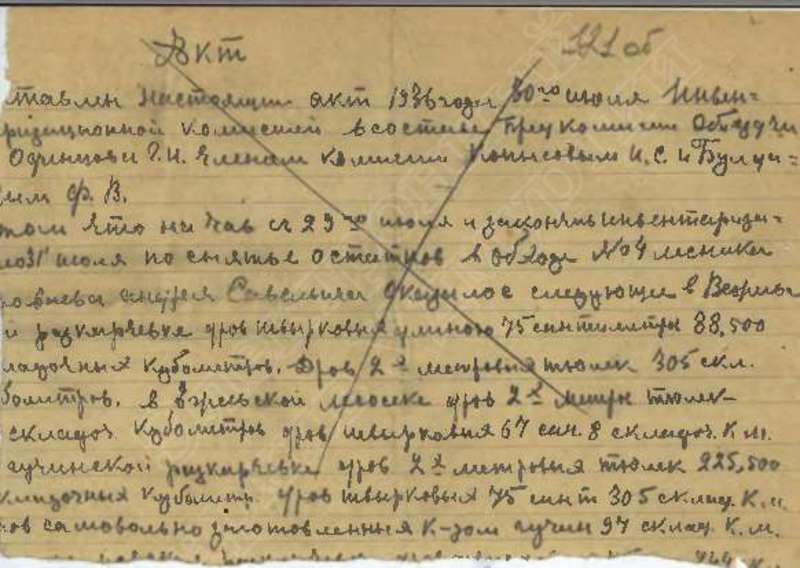 Акт 121 об
ставлен настоящий акт 1936 года 30го июля Инвен=
ризиционной комиссией в составе Пред комисии Объездчи
Одинцова Г. И. Членам комисии Копысовым И. С. и Булда=
ым Ф. В.
том что начав с 29го июля и закончив инвентариза=
ию 31 июля по снятье остатков в обходе №4 лесника
Савельича оказалос следующи в
и раскорчевке дров швырковых длиною 75 сантиметра 88,500
ладочных кубометров. Дров 2х метровых тюлек 305 скл.
бометров. в лесосеке дров 2х метра тюлек
складоч кубометров дров швырковых 67 сан. 8 складоч. К. м.
гучинской раскорчевке дров 2х метровых тюлек 225,500
кладочных кубометр. дров швырковых 75 сант 305 склад. К. м.
ров самовольно заготовленных К-зом гучин 97 склад. К. м.